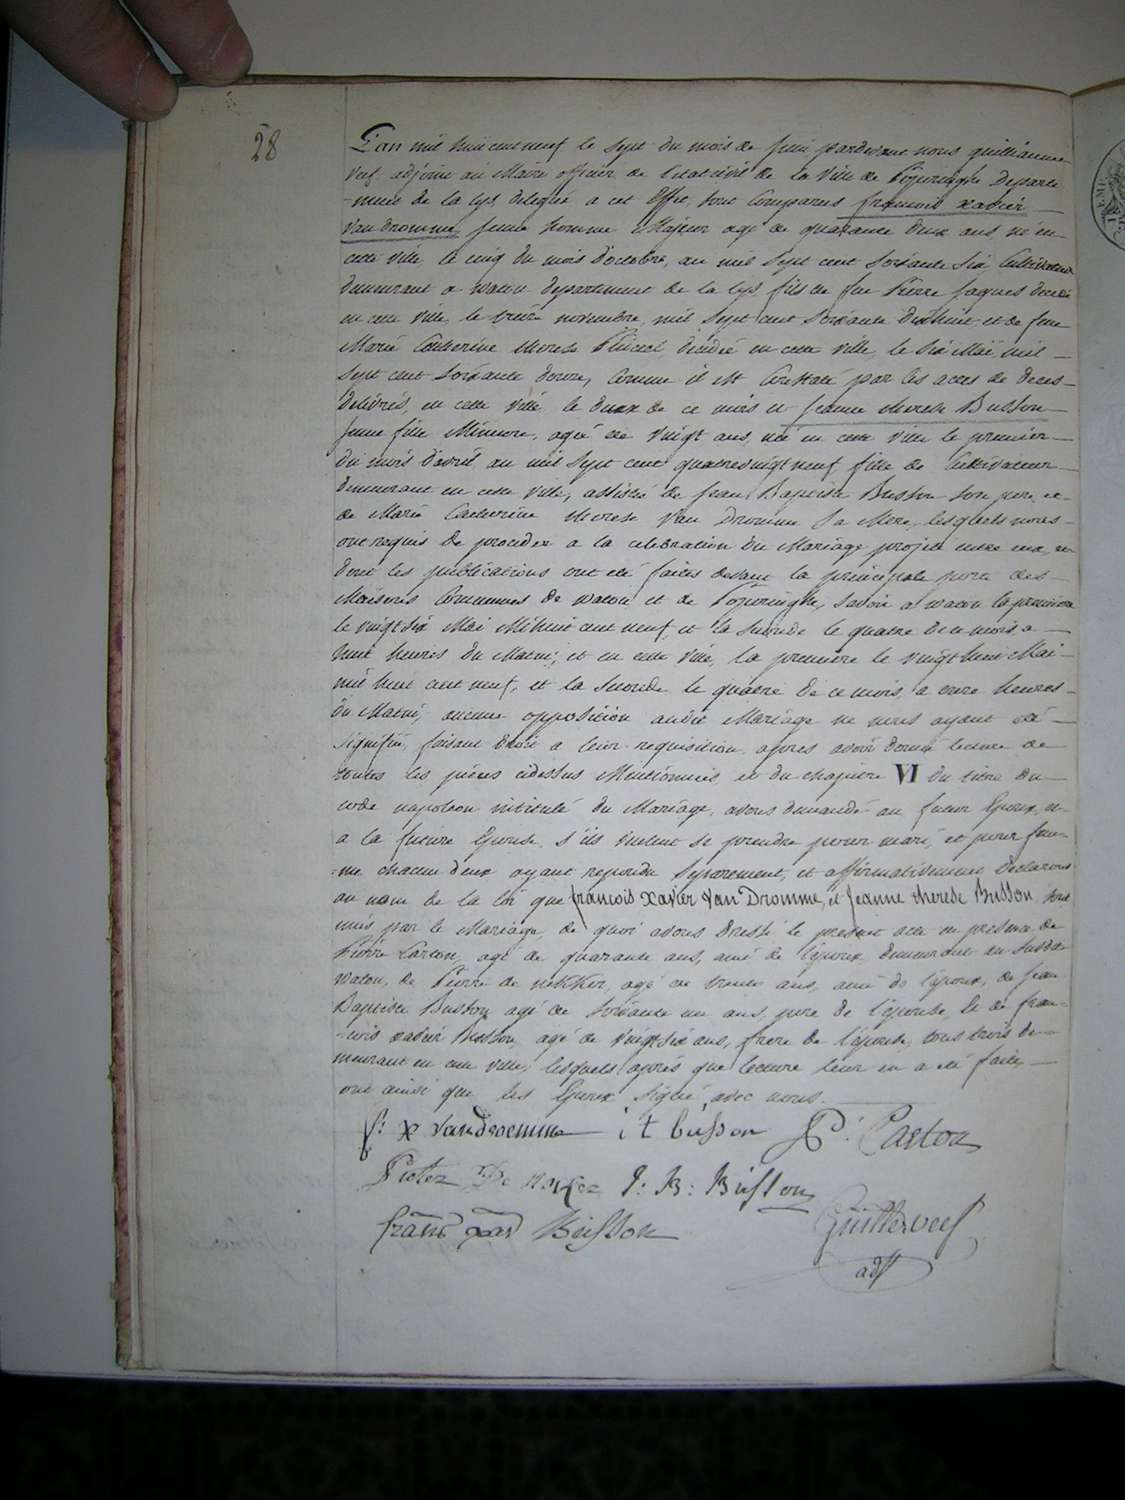 28
L'an mil huit cent neuf le sept du mois de juin pardevant nous guilliaume
Veif adjoint au Maire officier de l'etat civil de la Ville de Poperinghe Departe
-ment de la Lys delegué a cet Effet, sont Comparus francois xavier
Van dromme, jeune homme Majeur agé de quarante deux ans, né en
cette ville, le cinq du mois d'octobre, an mil sept cent soixante six Cultivateur
demeurant a watou departement de la Lys fils de feu Pierre Jaques decedé
en cette ville le treize novembre, mil sept cent soixante dixhuit et de feue
Marie Catherine therese décédée en cette ville, le six Mai, mil
sept cent soixante douze, comme il est Constaté par les actes de deces
delivrés, en cette ville le deux de ce mois et jeanne therese Busson
jeune fille Mineure, agée de vingt ans, née en cette ville le premier
du mois d'avril an mil sept cent quatrevingt neuf fille de Cultivateur
demeurant en cette ville, assistée de jean Baptiste Busson son pere, et
de Marie Catherine therese Van Dromme sa Mere, lesquels nous
ont requis de proceder a la celebration du Mariage projeté entre eux, et
dont les publications ont eté faites devant la principale porte des
Maisons Communes de watou et de Poperinghe, savoir a watou la premiere
le vingt six Mai Mil huit cent neuf, et la seconde le quatre de ce mois, a
huit heures du Matin; et en cette ville, la premiere le vingt huit Mai
mil huit cent neuf, et la seconde le quatre de ce mois, a onze heures
du Matin, aucune opposition audit Mariage ne nous ayant eté
signifiée, faisant droit a leur requisition apres avoir donné lecture de
toutes les pièces cidessus Mentionnées, et du chapitre VI du titre du
code napoleon intitulé du Mariage, avons demandé au futur Epoux, et
a la future Epouse, s'ils veulent se prendre pour mari, et pour fem-
-me chacun deux ayant repondu separement, et affirmativement declarons
au nom de la loi que francois xavier van Dromme, et Jeanne therese Busson, sont
unis par le Mariage, de quoi avons dressé le present acte en presence de
Pierre Carton, agé de quarante ans, ami de l'époux demeurant au susdit
watou, de Pierre de nekker, agé de trente ans, ami de l'époux, de jean
Baptiste Busson agé de soixante un ans, pere de l'épouse, et de fran-
-cois xavier Busson, agé de vingt six ans, frere de l'épouse, tous trois de-
meurant en cette ville, lesquels après que lecture leur en a eté faite,
ont ainsi que les Epoux signé avec nous.
f: x vandroemme i t busson P. Carton
Pieter De nekker J: B: Busson
frans xav Busson Guille veif
adj